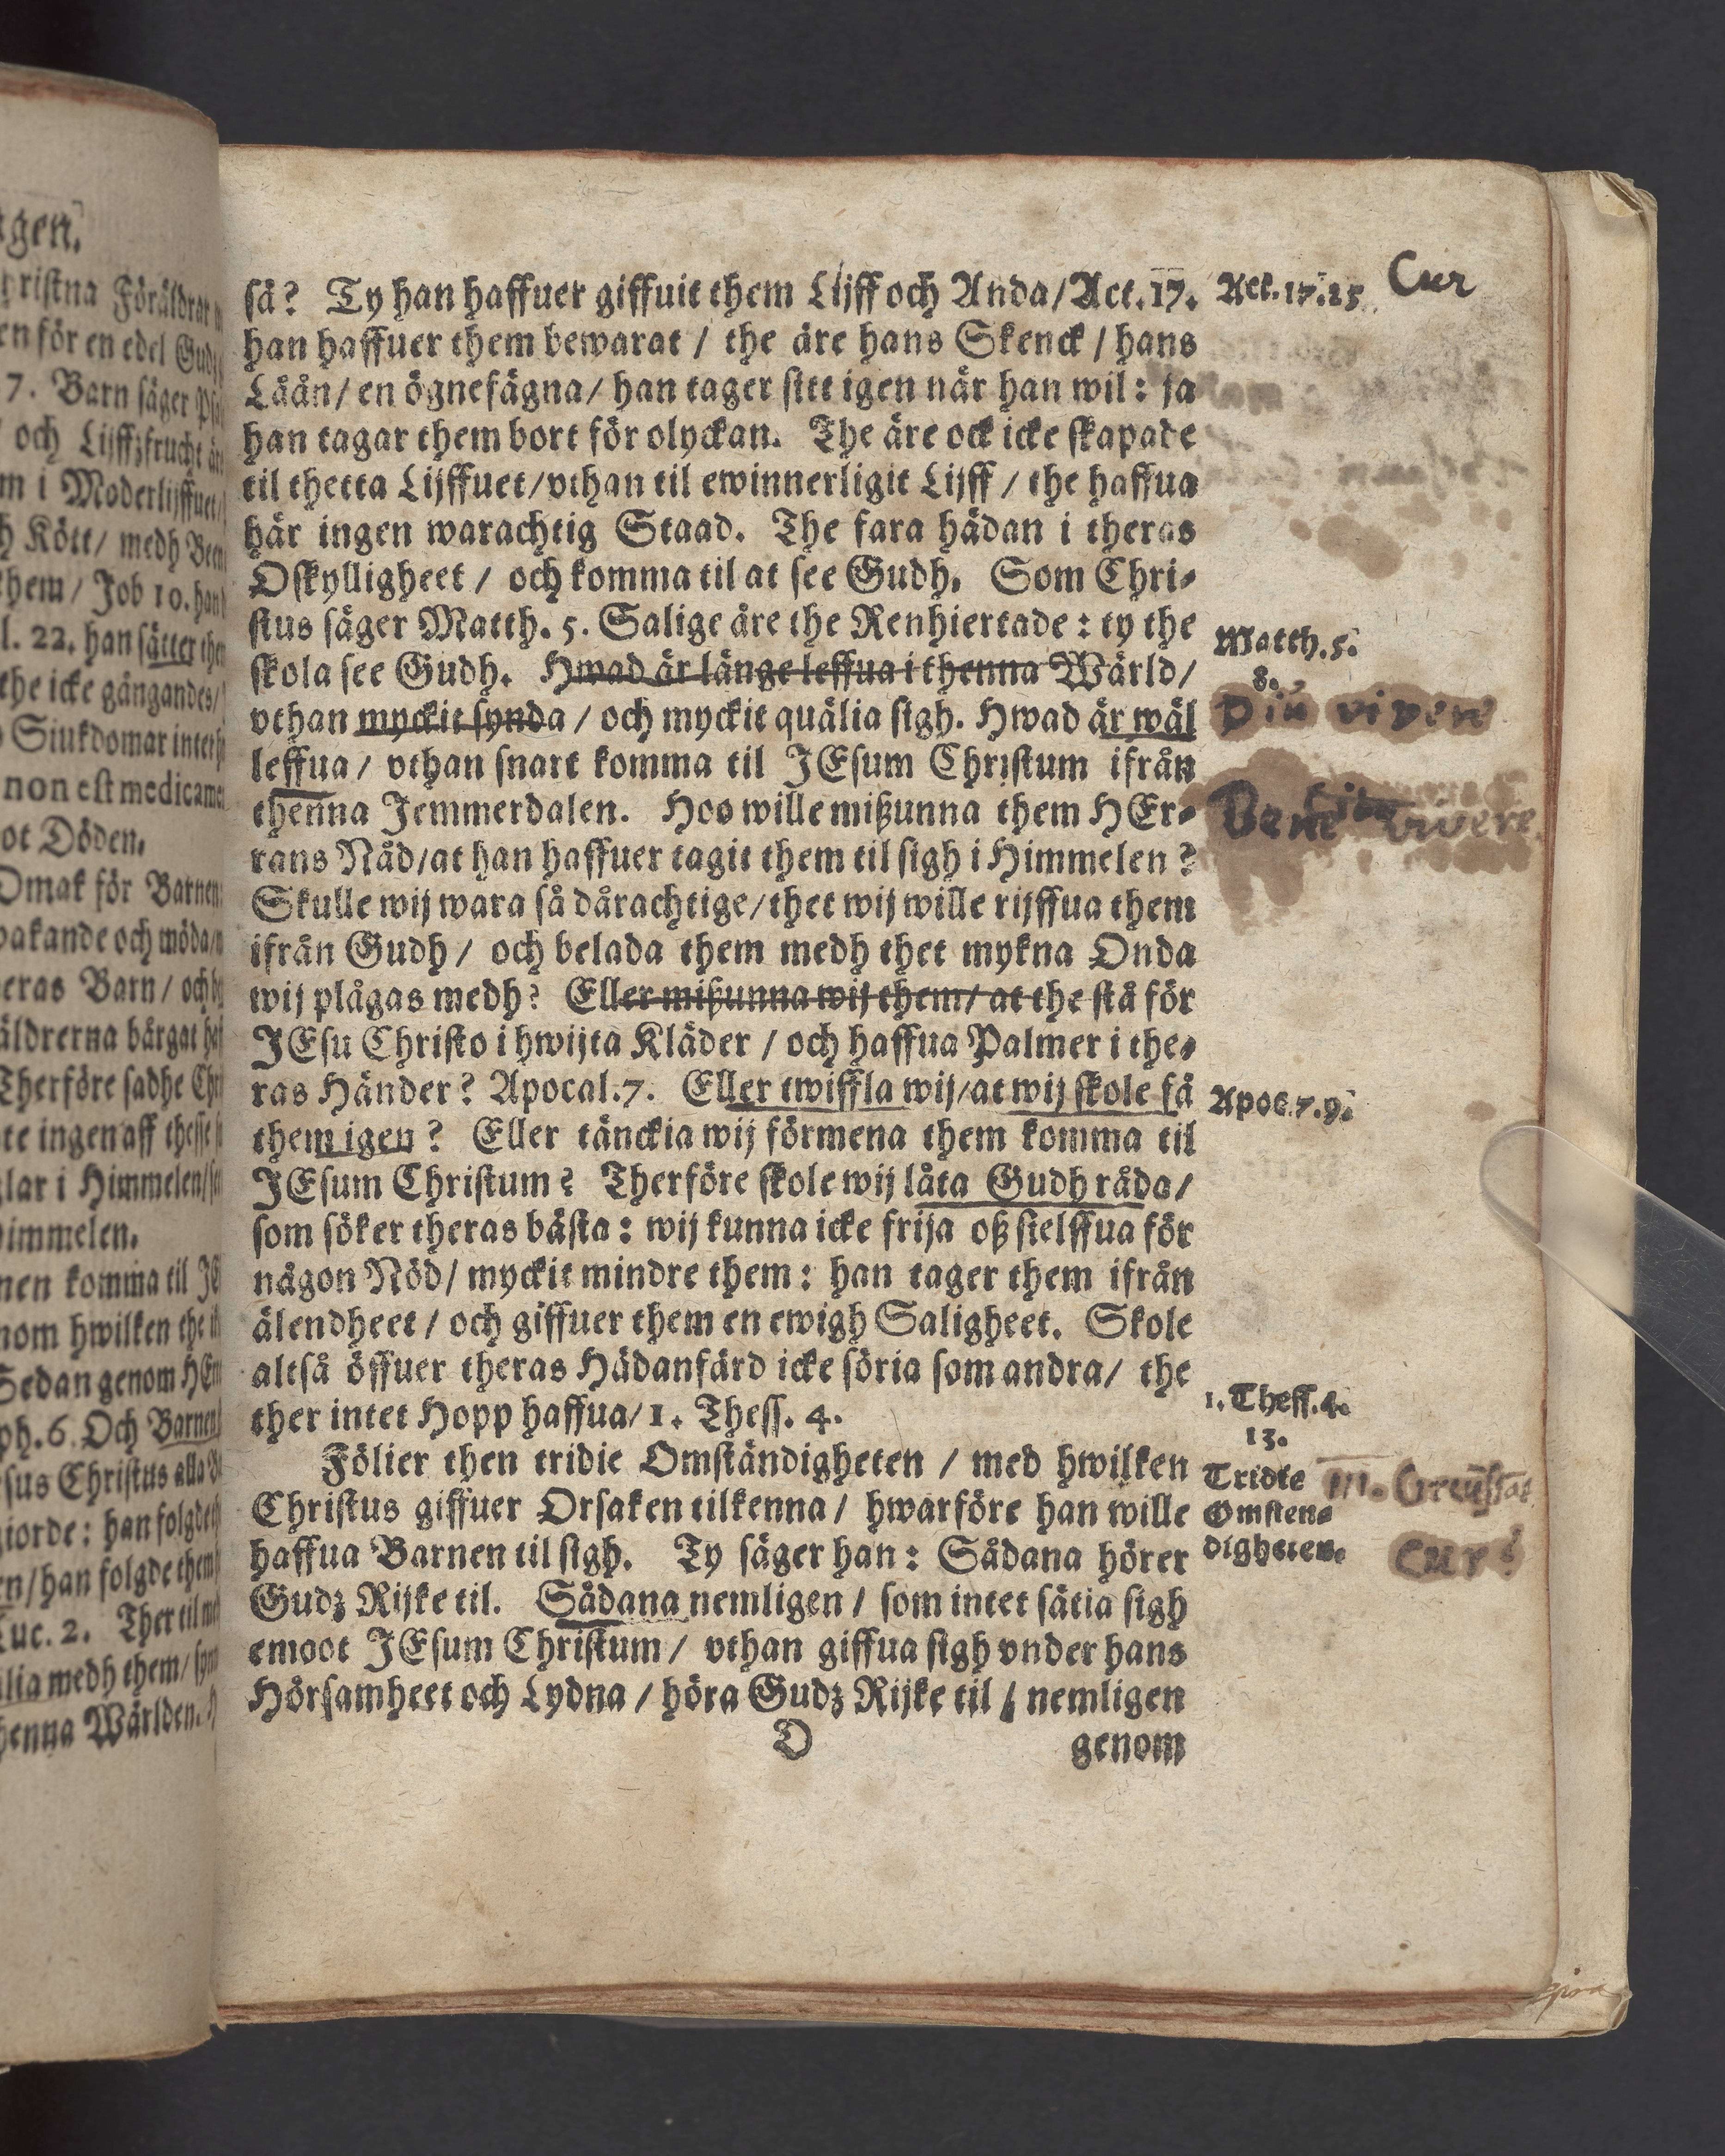 gen.
ristna Föräldrar
en för en edel Gudz
7. Barn säger Ps
och Lijffzfrucht är
m i Moderlijffuet/
h Kött/ medh Been
them/ Job 10. han
l. 22. han sätter them
the icke gångandes/
Siukdomar inteth
non est medicamen
ot Döden.
Omak för Barnen
wakande och möda/
eras Barn/ och
äldrerna bärgat
Therföre sadhe Chri
te ingen aff thesse
lar i Himmelen/
immelen.
nen komma til JE
nom hwilken the
Sedan genom HEr
ph. 6. Och Barnen
sus Christus alla
iorde: han folgde
en/ han folgde them
Luc. 2. Ther til med
lia medh them/
henna Wärlden.
så? Ty han haffuer giffuit them Lijff och Anda/ Act. 17.
han haffuer them bewarat / the äre hans Skenck / hans
Låån/ en ögnefägna/ han tager sitt igen när han wil: ja
han tagar them bort för olyckan. The äre ock icke skapade
til thetta Lijffuet/ vthan til ewinnerligit Lijff / the haffua
här ingen warachtig Staad. The fara hädan i theras
Oskylligheet / och komma til at see Gudh. Som Chri-
stus säger Matth. 5. Salige äre the Renhiertade: ty the
skola see Gudh. Hwad är länge leffua i thenna Wärld/
vthan myckit synda / och myckit quälia sigh. Hwad är wäl
leffua/ vthan snart komma til JEsum Christum ifrån
thenna Jemmerdalen. Hoo wille mißunna them HEr-
rans Nåd/ at han haffuer tagit them til sigh i Himmelen?
Skulle wij wara så dårachtige/ thet wij wille rijffua them
ifrån Gudh / och belada them medh thet mykna Onda
wij plågas medh? Eller mißunna wij them/ at the stå för
JEsu Christo i hwijta Kläder / och haffua Palmer i the-
ras Händer? Apocal. 7. Eller twiffla wij/ at wij skole få
them igen? Eller tänckia wij förmena them komma til
JEsum Christum? Therföre skole wij låta Gudh råda/
som söker theras bästa: wij kunna icke frija oß sielffua för
någon Nöd/ myckit mindre them: han tager them ifrån
älendheet / och giffuer them en ewigh Saligheet. Skole
altså öffuer theras Hädanfärd icke söria som andra/ the
ther intet Hopp haffua/ 1. Thess. 4.
Fölier then tridie Omständigheten / med hwilken
Christus giffuer Orsaken tilkenna / hwarföre han wille
haffua Barnen til sigh. Ty säger han: Sådana hörer
Gudz Rijke til. Sådana nemligen / som intet sätia sigh
emoot JEsum Christum / vthan giffua sigh vnder hans
Hörsamheet och Lydna / höra Gudz Rijke til / nemligen
O genom
Act. 17.25.
Cur
Matth. 5.
8.
Diu vivere
Bene vivere
Apoc. 7.9.
1. Thess. 4.
13.
Tridie
Omsten-
digheten.
Cur?